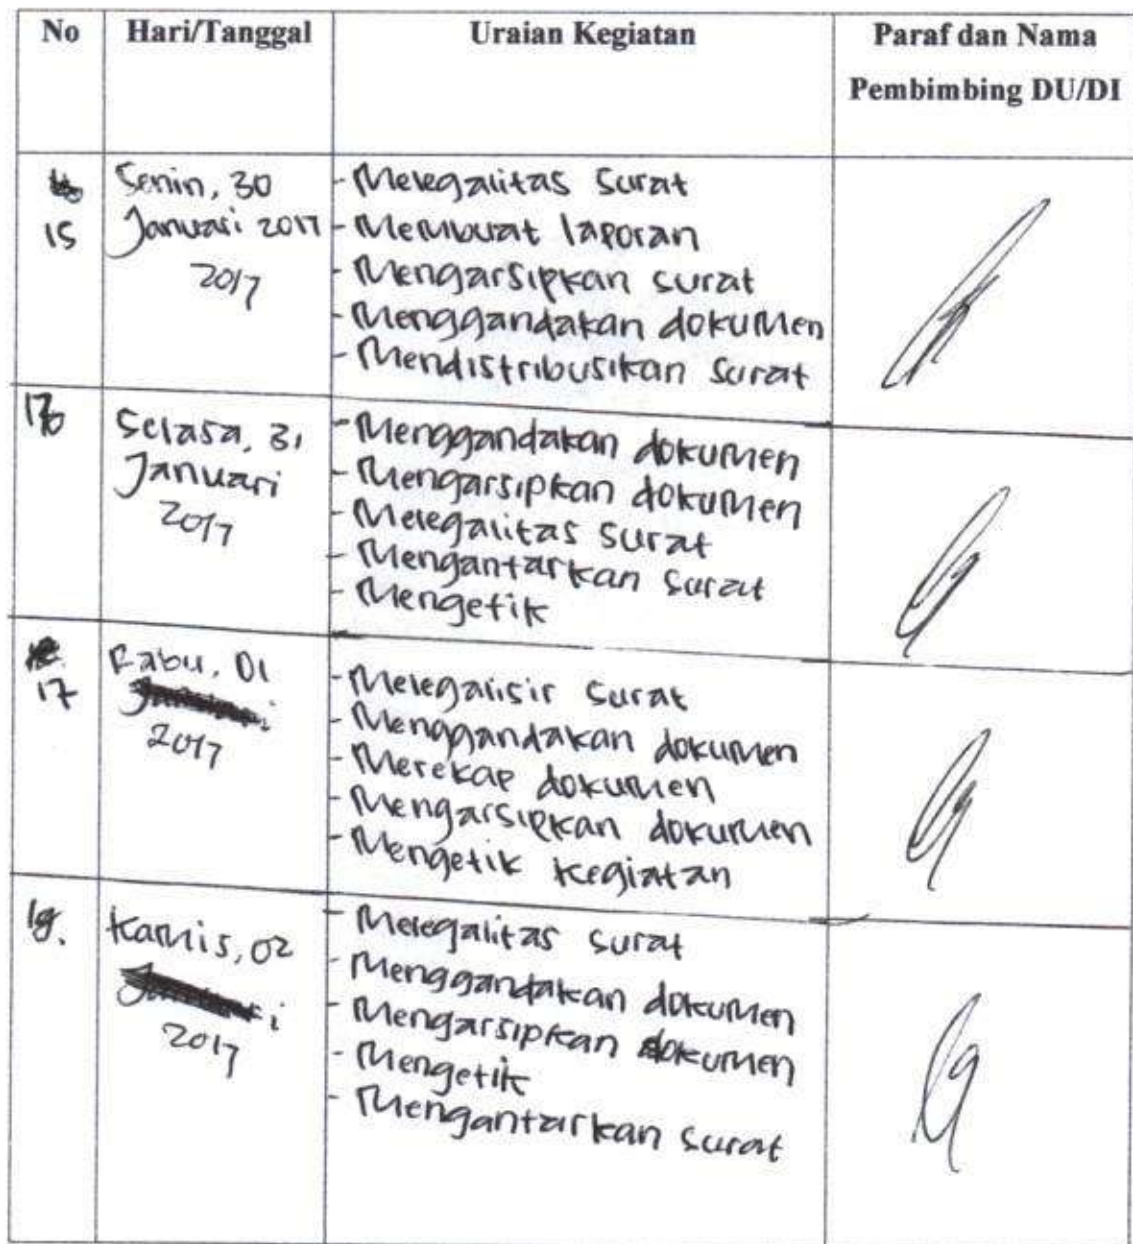 No Hari/Tanggal Uraian Kegiatan Paraf dan Nama
Pembimbing DU/DI
15
Senin, 30
Januari 2017
2017
- Melegalitas surat
- Membuat laporan
- Mengarsipkan surat
- Menggandakan dokumen
- Mendistribusikan surat
Selasa, 31
Januari
2017
- Menggandakan dokumen
- Mengarsipkan dokumen
- Melegalitas surat
- Mengantarkan surat
- Mengetik
17
Rabu, 01
2017
- Melegalisir surat
- Menggandakan dokumen
- Merekap dokumen
- Mengarsipkan dokumen
- Mengetik kegiatan
Kamis, 02
2017
- Melegalitas surat
- Menggandakan dokumen
- Mengarsipkan dokumen
- Mengetik
- Mengantarkan surat